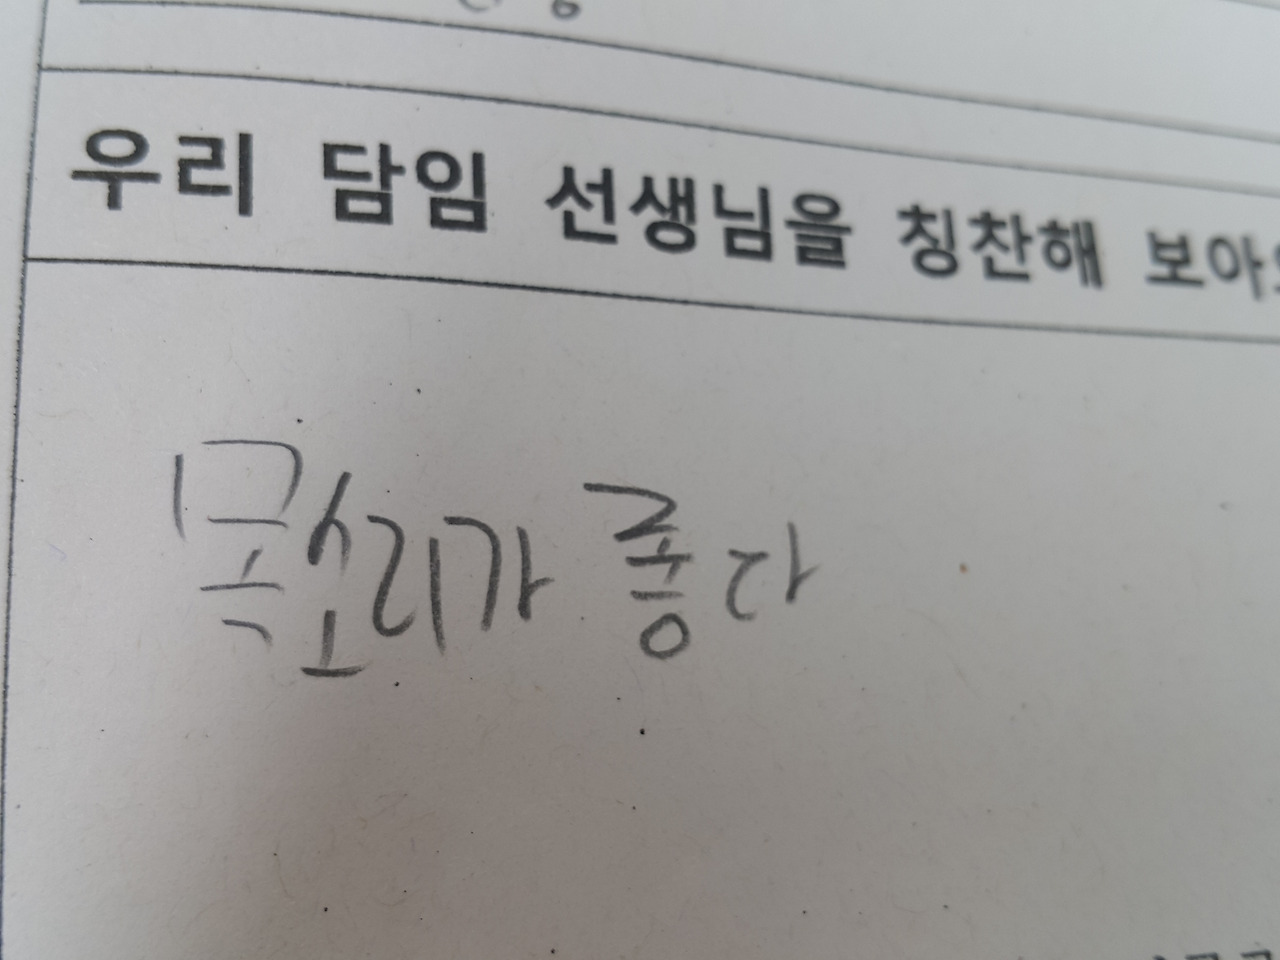 우리 담임 선생님을 칭찬해 보아요
목소리가 좋다